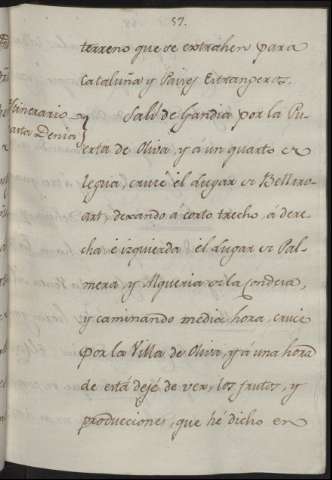 57.
terreno que se extrahen para
Cataluña y Paises Estrangeros.
Itinerario
asta Denia
Salí de Gandia por la Pu-
erta de Oliva, y á un quarto de
legua, crucé el Lugar de Bellrre-
art, dexando á corto trecho, á dere-
cha é izquierda el Lugar de Pal-
mera, y Alqueria de la Condesa,
y caminando media hora, cruce
por la Villa de Oliva, y á una hora
de está dejé de ver, los frutos, y
producciones, que hé dicho en